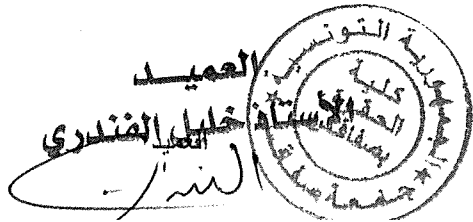 العميــد
الأستاذ خليل الفندري
العميد
الجمهورية التونسية
كلية
الحقوق
بصفاقس
جامعة صفاقس